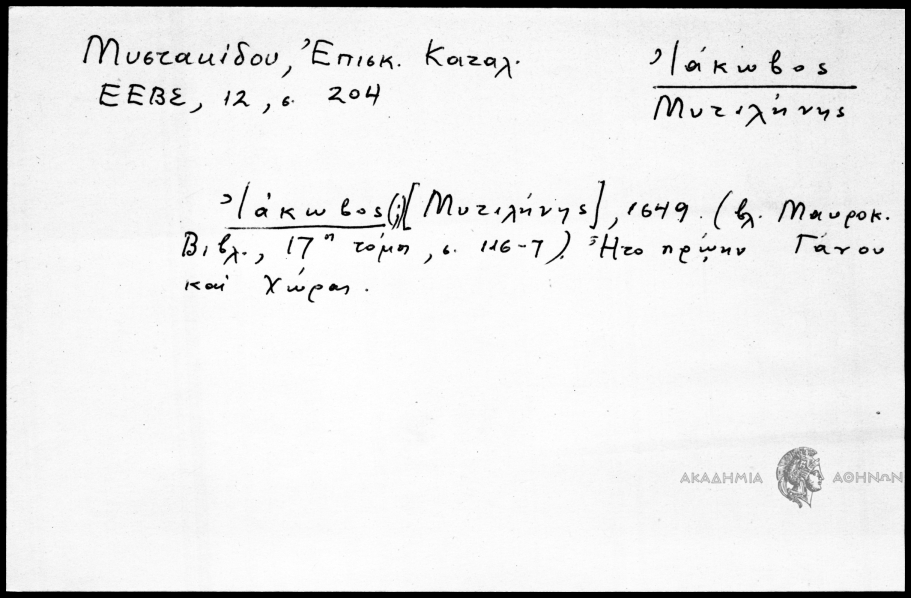 Μυστακίδου, Ἐπισκ. Καταλ.
ΕΕΒΣ, 12, σ. 204
Ἰάκωβος
Μυτιλήνης
Ἰάκωβος(;)[Μυτιλήνης], 1649. (βλ. Μαυροκ.
Βιβλ., 17η τόμη, σ. 116-7). Ἦτο πρῴην Γάνου
καὶ Χώρας.
ΑΚΑΔΗΜΙΑ ΑΘΗΝΩΝ